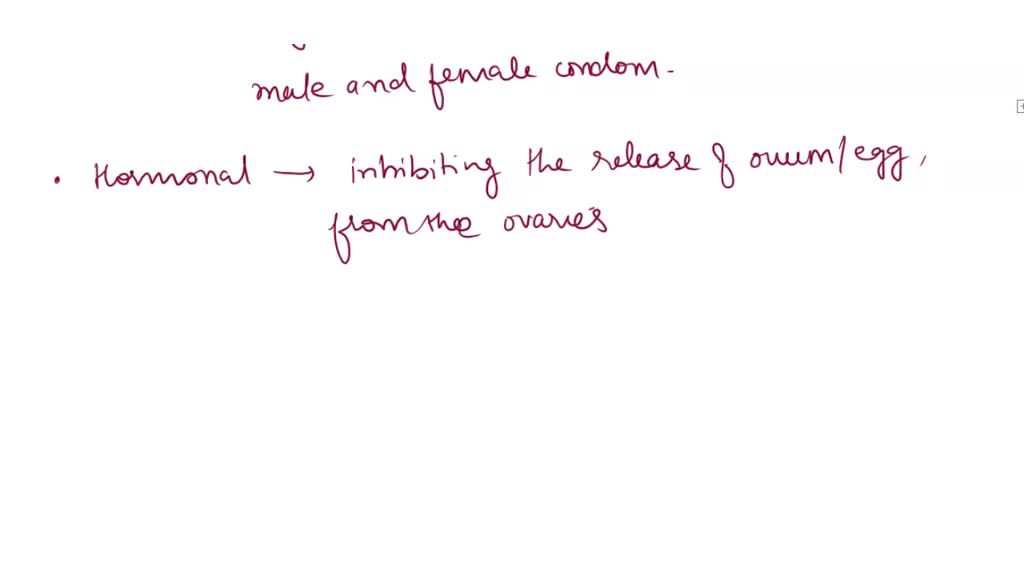 male and female condom.
• Hormonal → inhibiting the release of ovum/egg,
from the ovaries